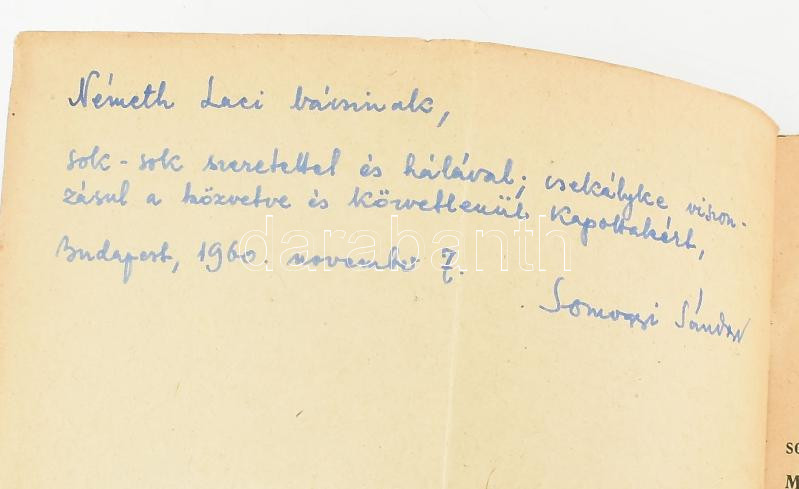 Németh Laci bácsinak,
sok-sok szeretettel és hálával; csekélyke viszon-
zásul a közvetve és közvetlenül kapottakért,
Budapest, 1960. november 7.
Somogyi Sándor
darabanth
so
M